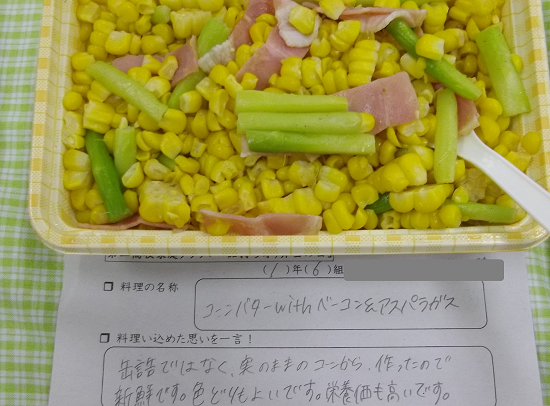 (1)年(6)組
料理の名称
コーンバターwithベーコン&アスパラガス
料理い込めた思いを一言！
缶詰ではなく、実のままのコーンから、作ったので
新鮮です。色どりもよいです。栄養価も高いです。